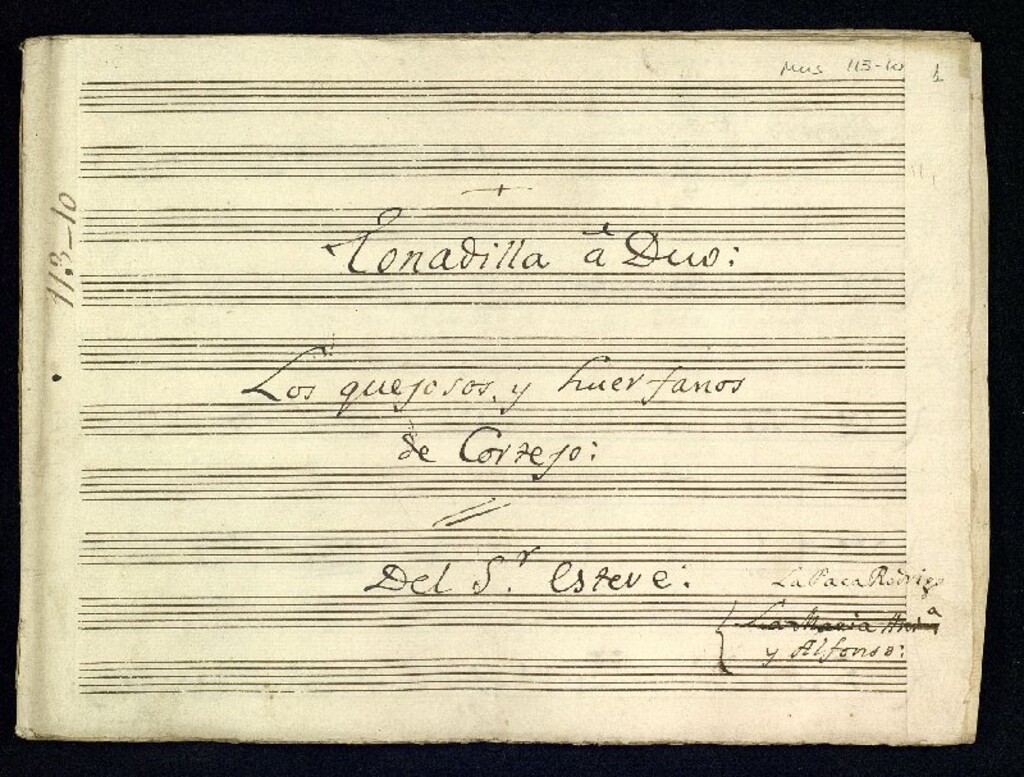 Mus 113-10
1
113-10
Tonadilla à Duo:
Los quejosos, y huerfanos
de Cortejo:
Del S.r Esteve:
La Paca Rodrig.a
La Maria
y Alfonso: